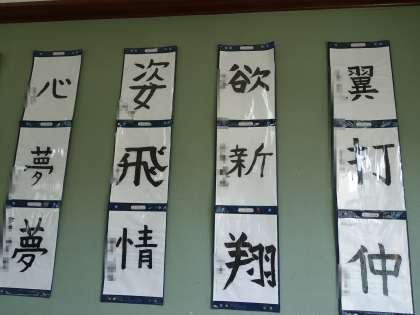 翼
打
仲
欲
新
翔
姿
飛
情
心
夢
夢